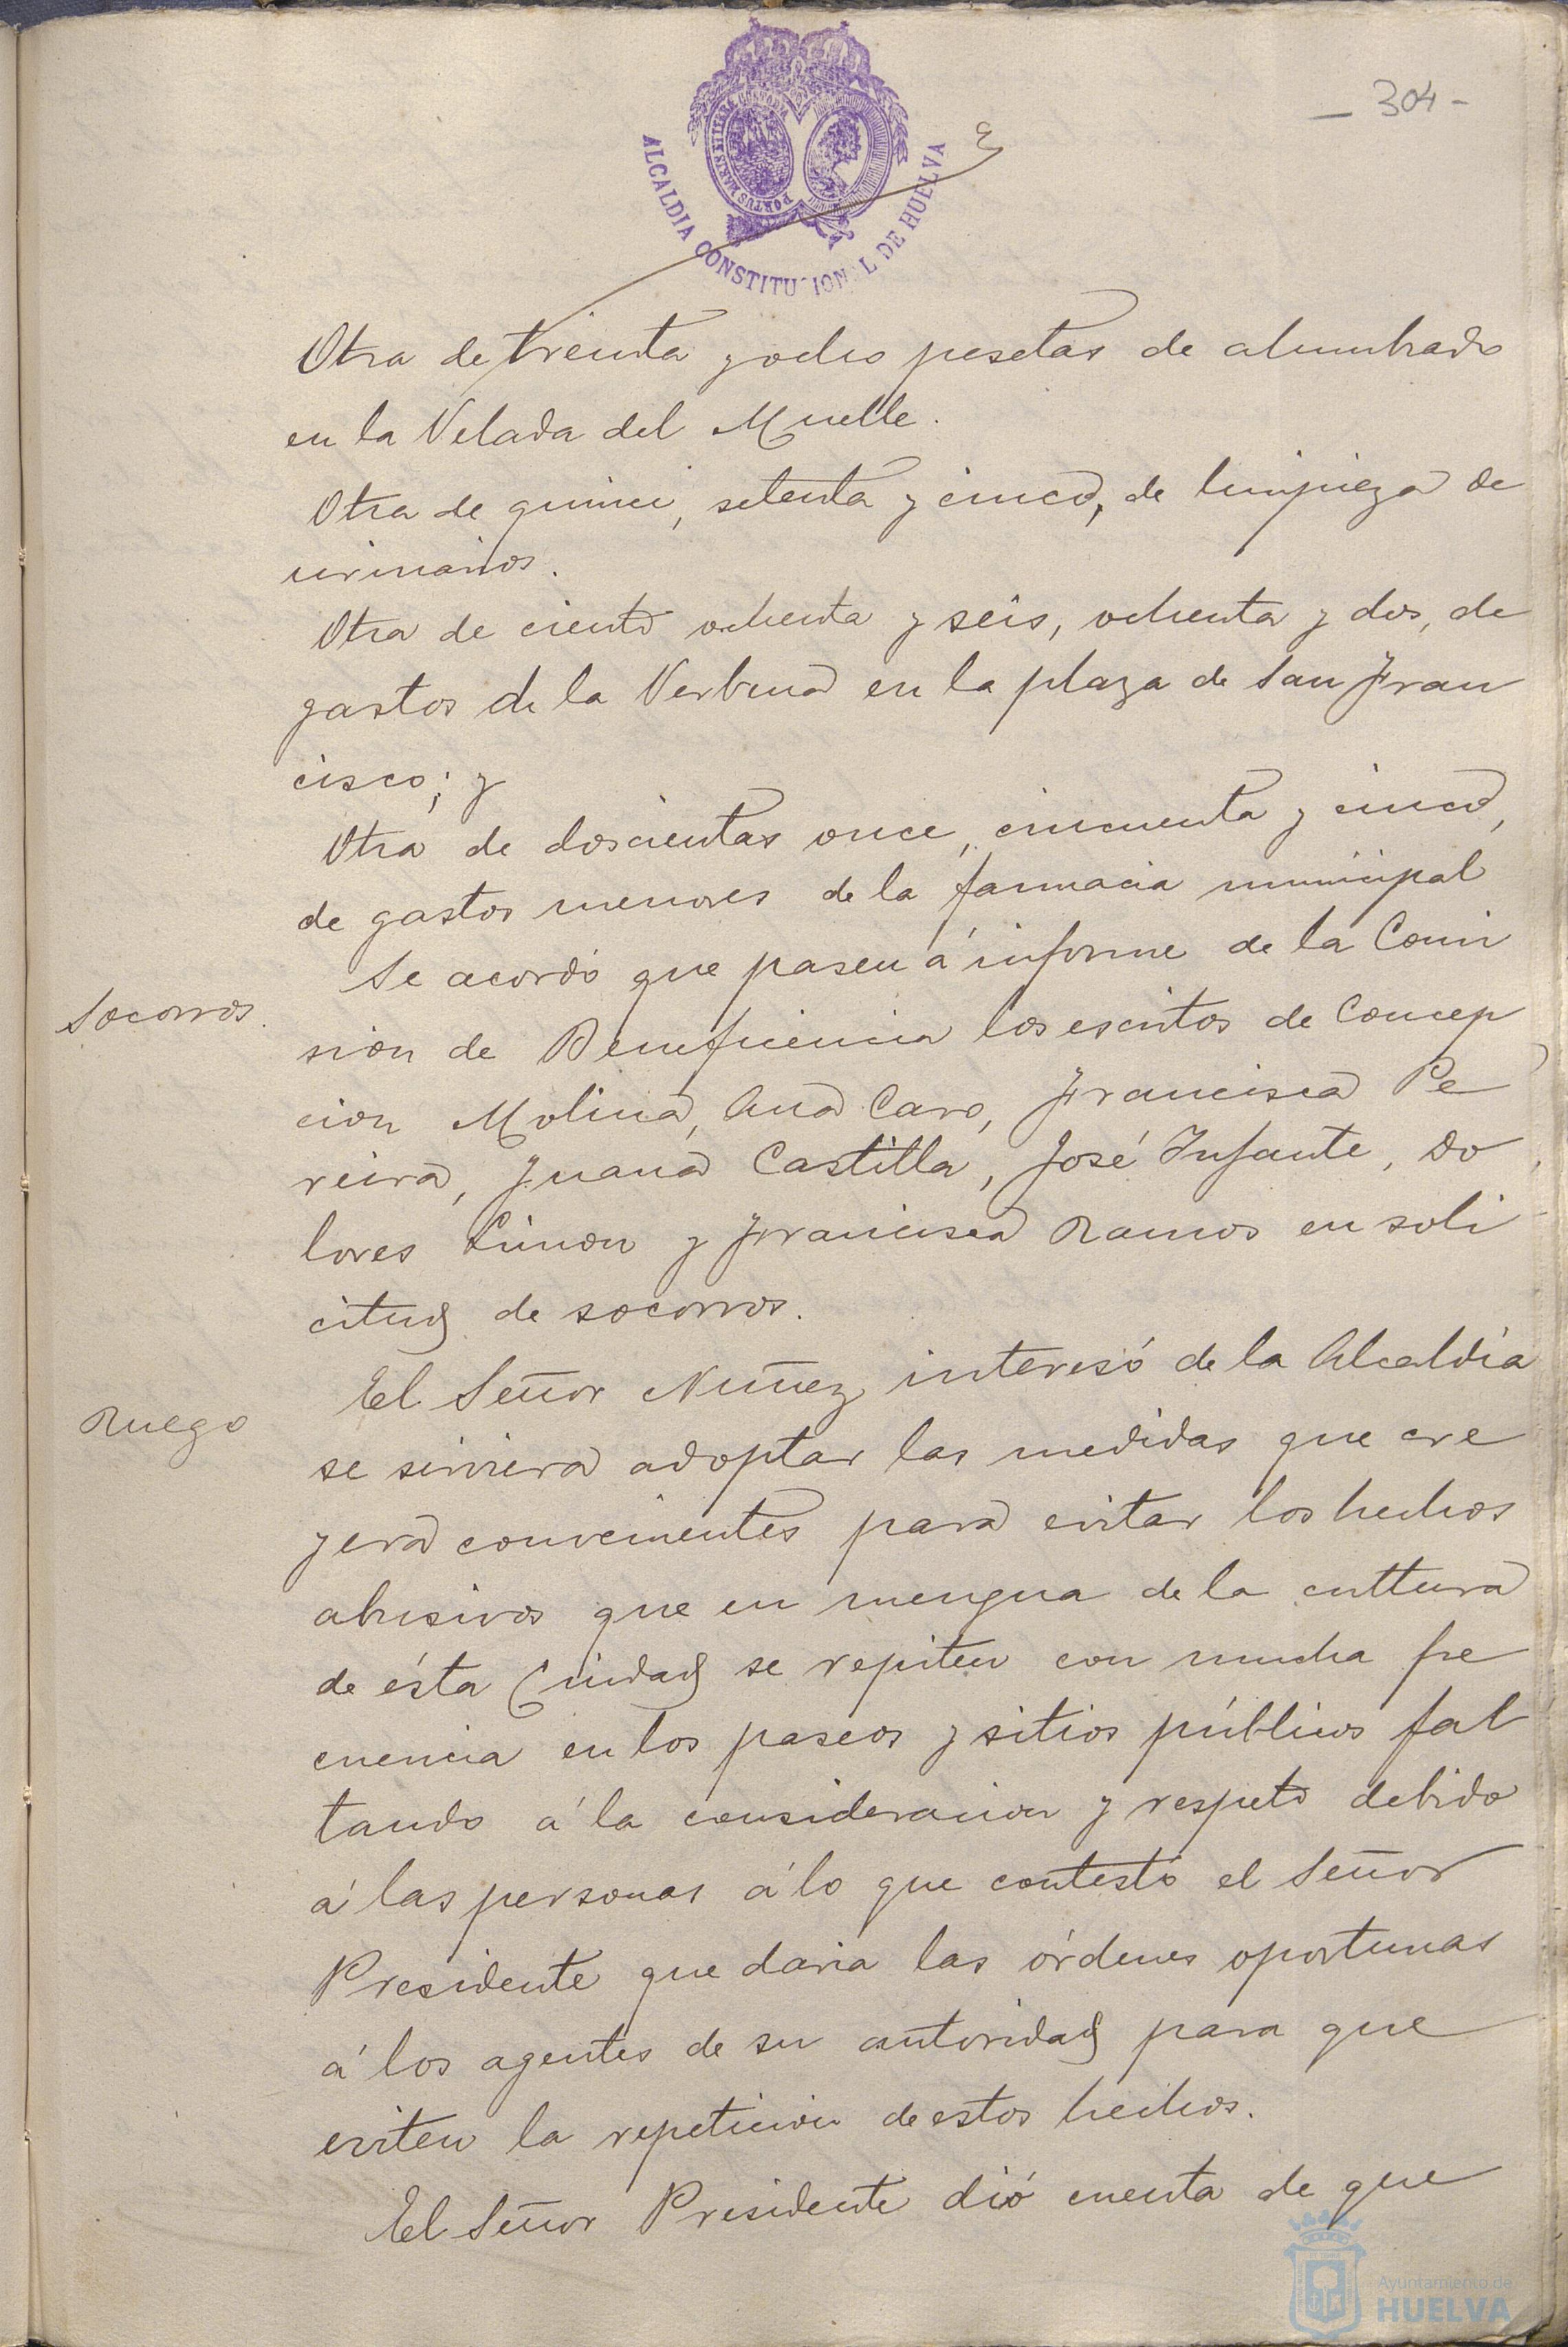 - 304 -
PORTUS MARIS ET TERRAE CUSTODIA
ALCALDIA CONSTITUCIONAL DE HUELVA
Otra de treinta y ocho pesetas de alumbrado
en la Velada del Muelle.
Otra de quince, setenta y cinco, de limpieza de
urinarios.
Otra de ciento ochenta y seis, ochenta y dos, de
gastos de la Verbena en la plaza de San Fran
cisco; y
Otra de doscientas once, cincuenta y cinco,
de gastos menores de la farmacia municipal
Socorros.
Se acordó que pasen á informe de la Comi
sion de Beneficencia los escritos de Concep
cion Molina, Ana Caro, Francisca Pe
reira, Juana Castilla, José Infante, Do
lores Limon y Francisca Ramos en soli
citud de socorros.
Ruego
El Señor Nuñez interesó de la Alcaldía
se sirviera adoptar las medidas que cre
yera convenientes para evitar los hechos
abusivos que en mengua de la cultura
de ésta Ciudad se repiten con mucha fre
cuencia en los paseos y sitios públicos fal
tando á la consideracion y respeto debido
á las personas á lo que contestó el Señor
Presidente que daria las órdenes oportunas
á los agentes de su autoridad para que
eviten la repeticion de estos hechos.
El Señor Presidente dió cuenta de que
Ayuntamiento de
HUELVA